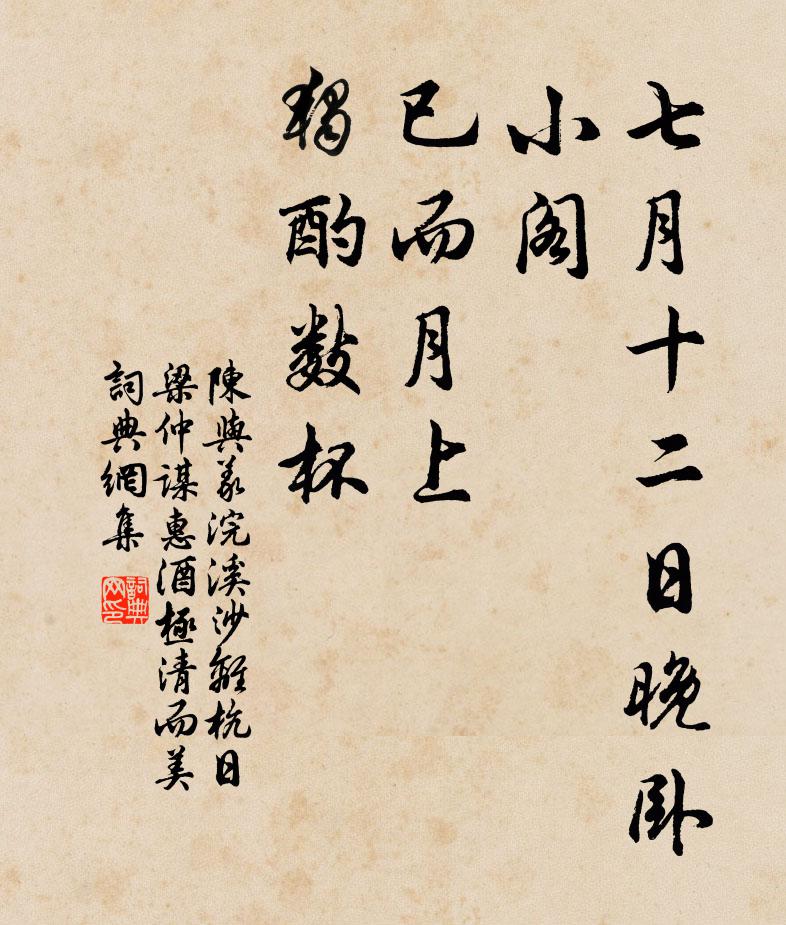 七月十二日晚卧
小阁
已而月上
独酌数杯
陳與義浣溪沙離杭日
梁仲謀惠酒極清而美
詞典網集
詞典网印